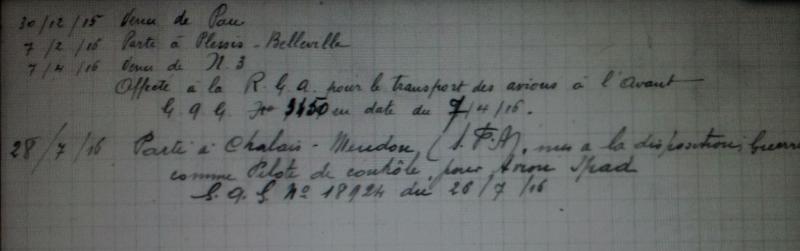 30/12/15 Venu de Pau
7/2/16 Parti à Plessis-Belleville
7/4/16 Venu de N. 3
Affecté à la R.G.A. pour le transport des avions à l'avant
G A G No 3450 en date du 7/4/16.
28/7/16 Parti à Chalais-Meudon, (S.F.A), mis a la disposition, Guerre
comme Pilote de contrôle, pour Avion Spad
G.A.G No 18924 du 26/7/16